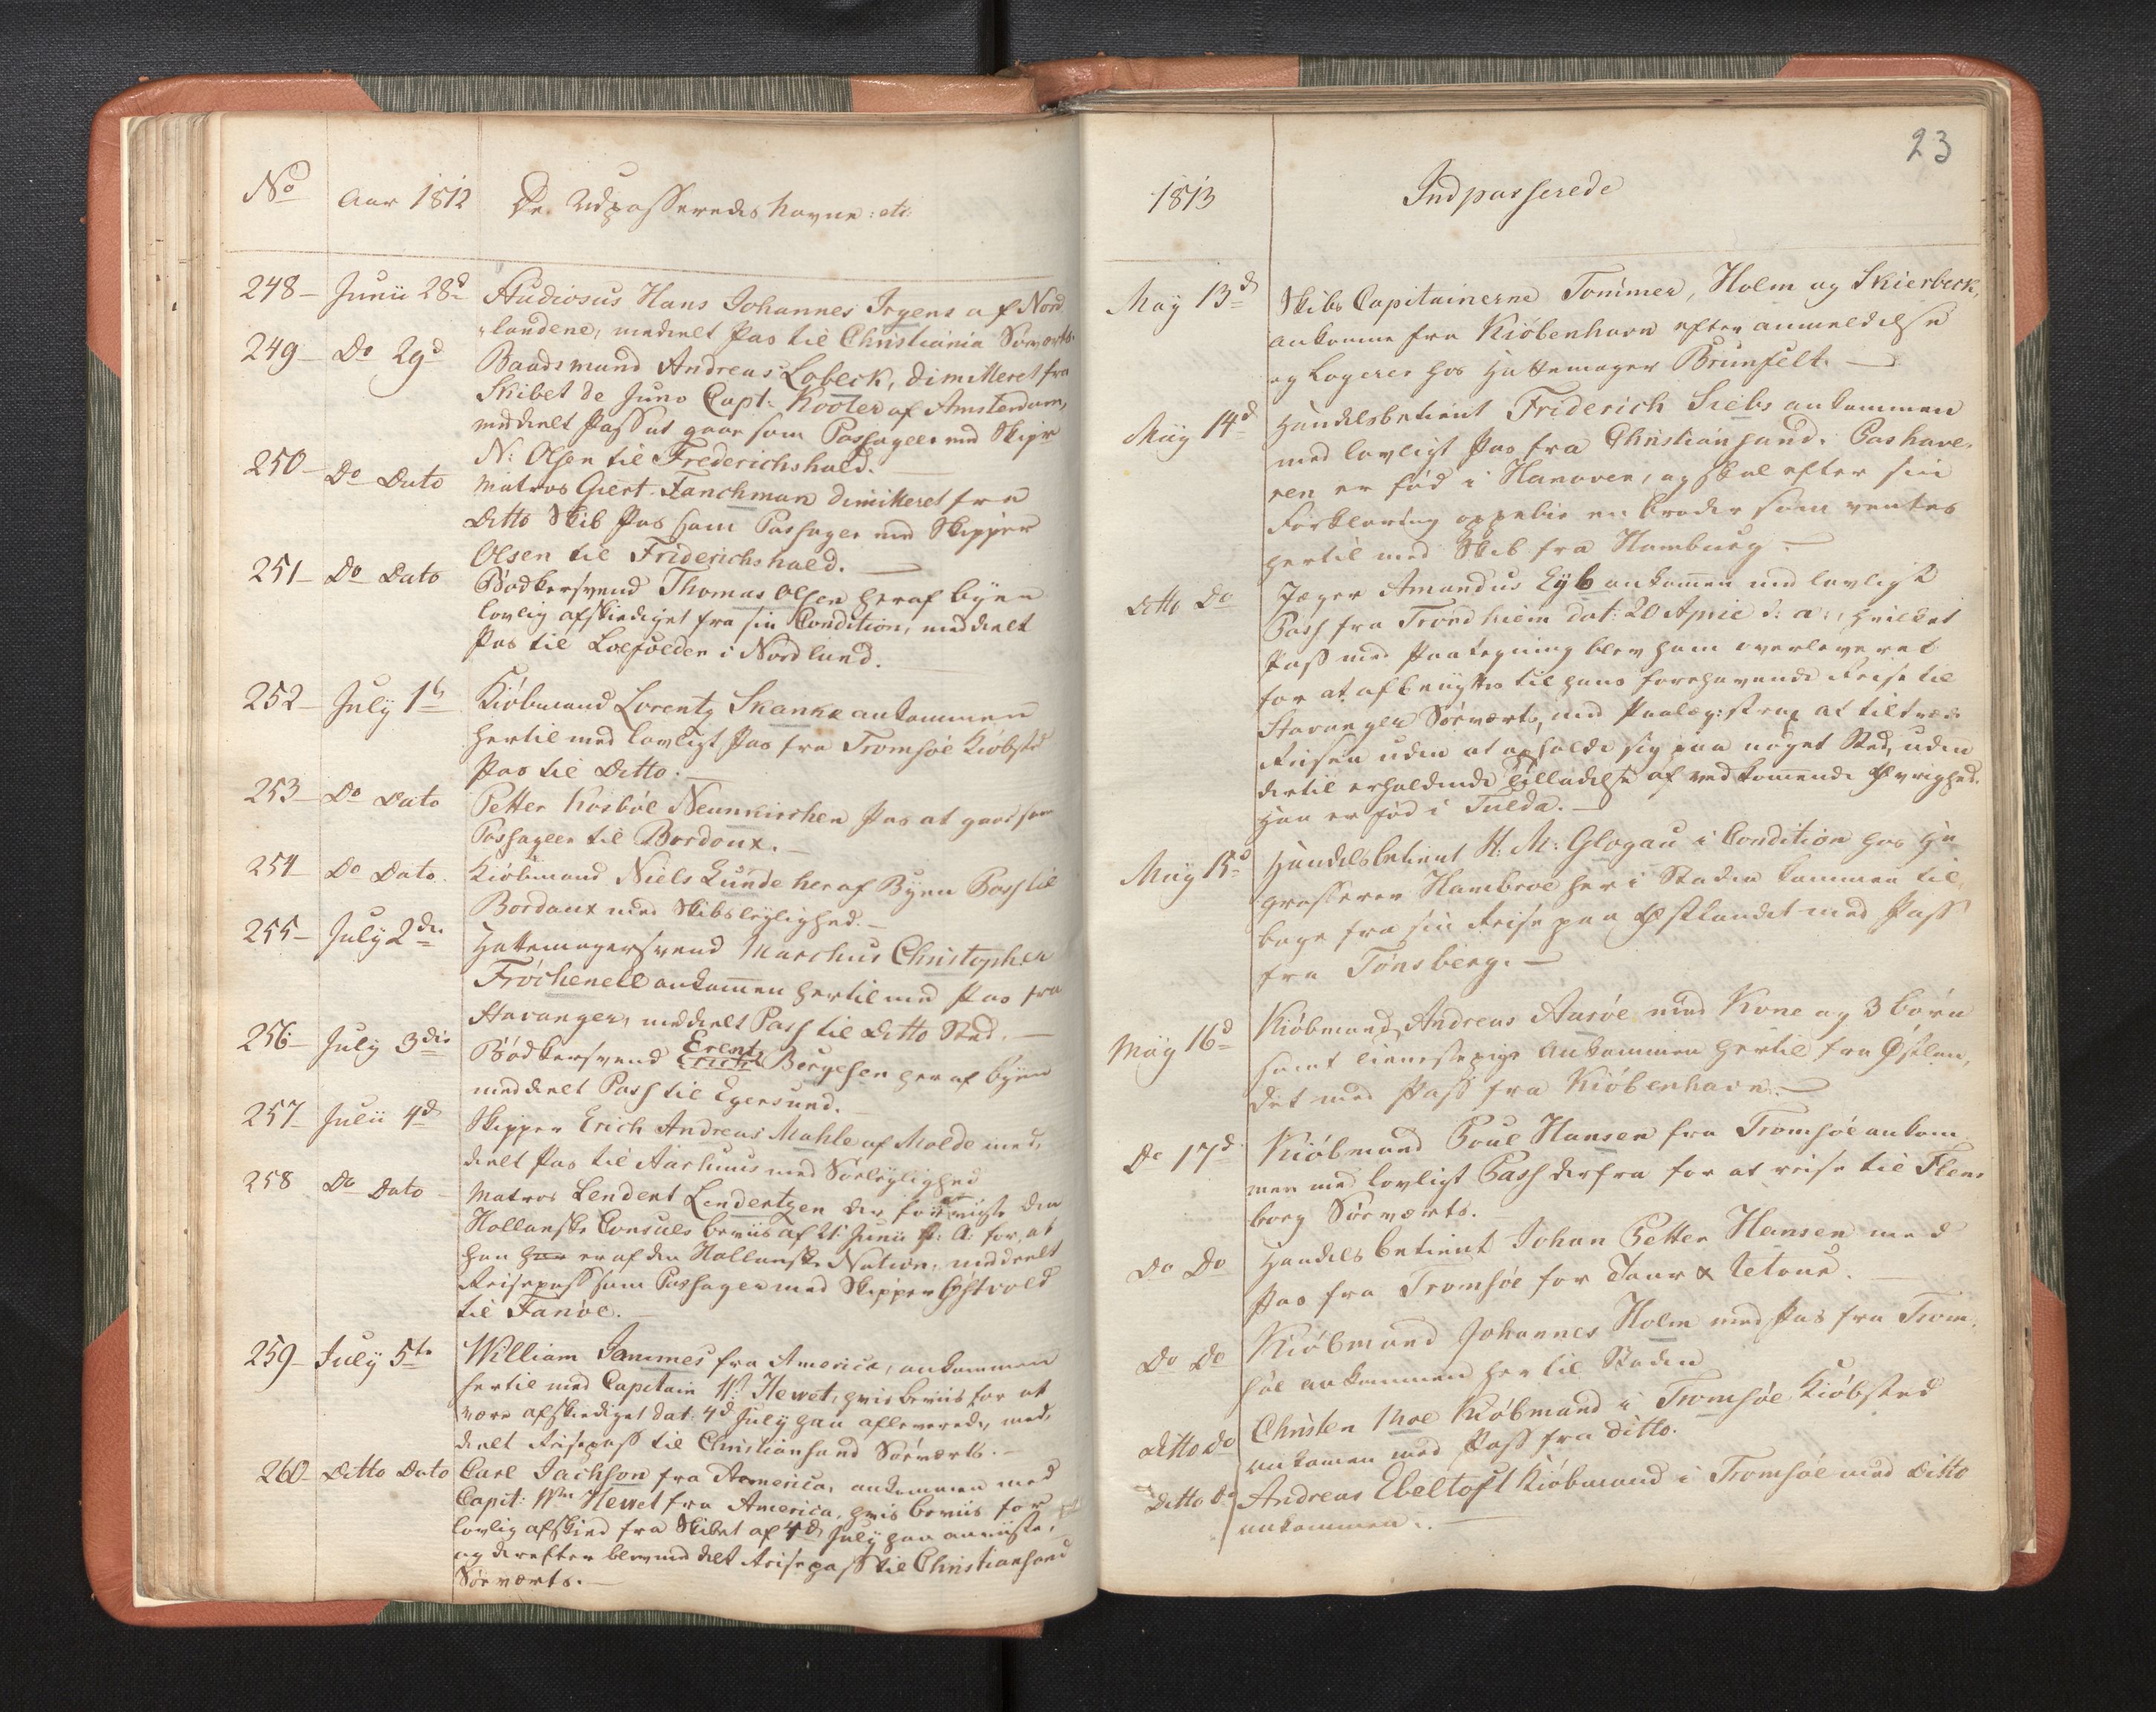 No Aar 1812 De Udpasseredes Navne: etc:
248 – Junii 28d Studiosus Hans Johannes Irgens af Nord-
landene, meddelt Pas til Christiania Søeværts.
249 – Do 29d Baadsmand Andreas Lobeck, dimitteret fra
Skibet de Juno Capt: Kooter af Amsterdam,
meddelt Pass at gaae som Passageer med Skipr
N: Olsen til Frederichshald.
250 – Do Dato Matros Giert Fanchman dimitteret fra
Ditto Skib Pas som Passager med Skipper
Olsen til Friderichshald. –
251 – Do Dato Bødkersvend Thomas Olsen her af byen
lovlig afskediget fra sin Condition, meddelt
Pas til Loefoeden i Nordland.
252 – July 1st Kiøbmand Lorentz Skanke ankommen
hertil med lovligt Pas fra Tromsøe Kiøbsted
Pas til Ditto. –
253 – Do Dato Petter Kosbøl Neunkirchen Pas at gaae som
Passageer til Bordoux. –
254 – Do Dato. Kiøbmand Niels Lunde her af Byen Pass til
Bordaux med Skibsleylighed. –
255 – July 2den Hattemagersvend Marchus Christopher
Frøchenell ankommen hertil med Pas fra
Stavanger, meddelt Pass til Ditto Sted. –
256 – July 3die Bødkersvend Erent Erich Børgesen her af byen
meddelt Pass til Egersund.
257 – Julii 4d Skipper Erich Andreas Mahle af Molde med,
deelt Pas til Aarhuus med Søeleylighed
258 Do Dato – Matros Lendert Lendertzen der foreviste den
Hollanske Consuls beviis af 21 Junii d: A: for, at
han her er af den Hollanske Nation, meddeelt
Reisepass som Passager med Skipper
til Fanøe. –
259 – July 5te William Jammes fra America, ankommen
hertil med Capitain Wm Hewet, hvis beviis for at
være afskediget dat: 4d July han afleverede, med,
deelt Reisepass til Christiansand Søeværts. –
260 – Ditto Dato Carl Jachson fra America, ankommen med
Capit: Wm Hewet fra America, hvis beviis for
lovlig afskeed fra Skibet af 4d July han anviiste,
og derefter blev meddelt Reisepass til Christiansand
Søeværts. –
23
1813 Indpasserede
May 13d Skibs Capitainerne Tommer, Holm og Skierbeck,
ankomne fra Kiøbenhavn efter anmeldelse
og Logerer hos Hattemager Brunfelt. –
May 14d Handelsbetient Friderich Siebs ankommen
med lovligt Pas fra Christiansand. Pashave,
ren er fød i Hanover, og skal efter sin
Forklaring oppebie en broder som ventes
hertil med Skib fra Hamburg. –
Ditto Do Jæger Amandus Eyb ankommen med lovligt
Pass fra Trondhiem dat: 20 April d: a:, hvilket
Pass med Paategning blev ham overleveret
for at afbenyttes til hans forehavende Reise til
Stavanger Søeværts, med Paalæg: strax at tiltræde
Reisen uden at opholde sig paa noget Sted, uden
dertil erholdende Tilladelse af vedkomende Øvrighed.
Han er fød i Fulda. –
May 15d Handelsbetient H: M: Glogau i Condition hos Gr
grosserer Hambroe her i Staden kommen til,
bage fra sin Reise paa Østlandet med Pass
fra Tønsberg. –
May 16d Kiøbmand Andreas Aasøe med Kone og 3 børn
samt tienestepige ankommen hertil fra Østlan,
det med Pass fra Kiøbenhavn. –
Do 17d Kiøbmand Poul Hansen fra Tromsøe ankom,
men med lovligt Pass derfra for at reise til Flens
borg Søeværts.
Do Do Handels betient Johan Petter Hansen med
Pas fra Tromsøe for Tour & retour. –
Do Do Kiøbmand Johannes Holm med Pas fra Trom,
søe ankommen her til Staden
Ditto do Christen Moe Kiøbmand i Tromsøe Kiøbsted
ankomen med Pass fra ditto.
Ditto do Andreas Ebeltoft Kiøbmand i Tromsøe med Ditto
ankommen. –